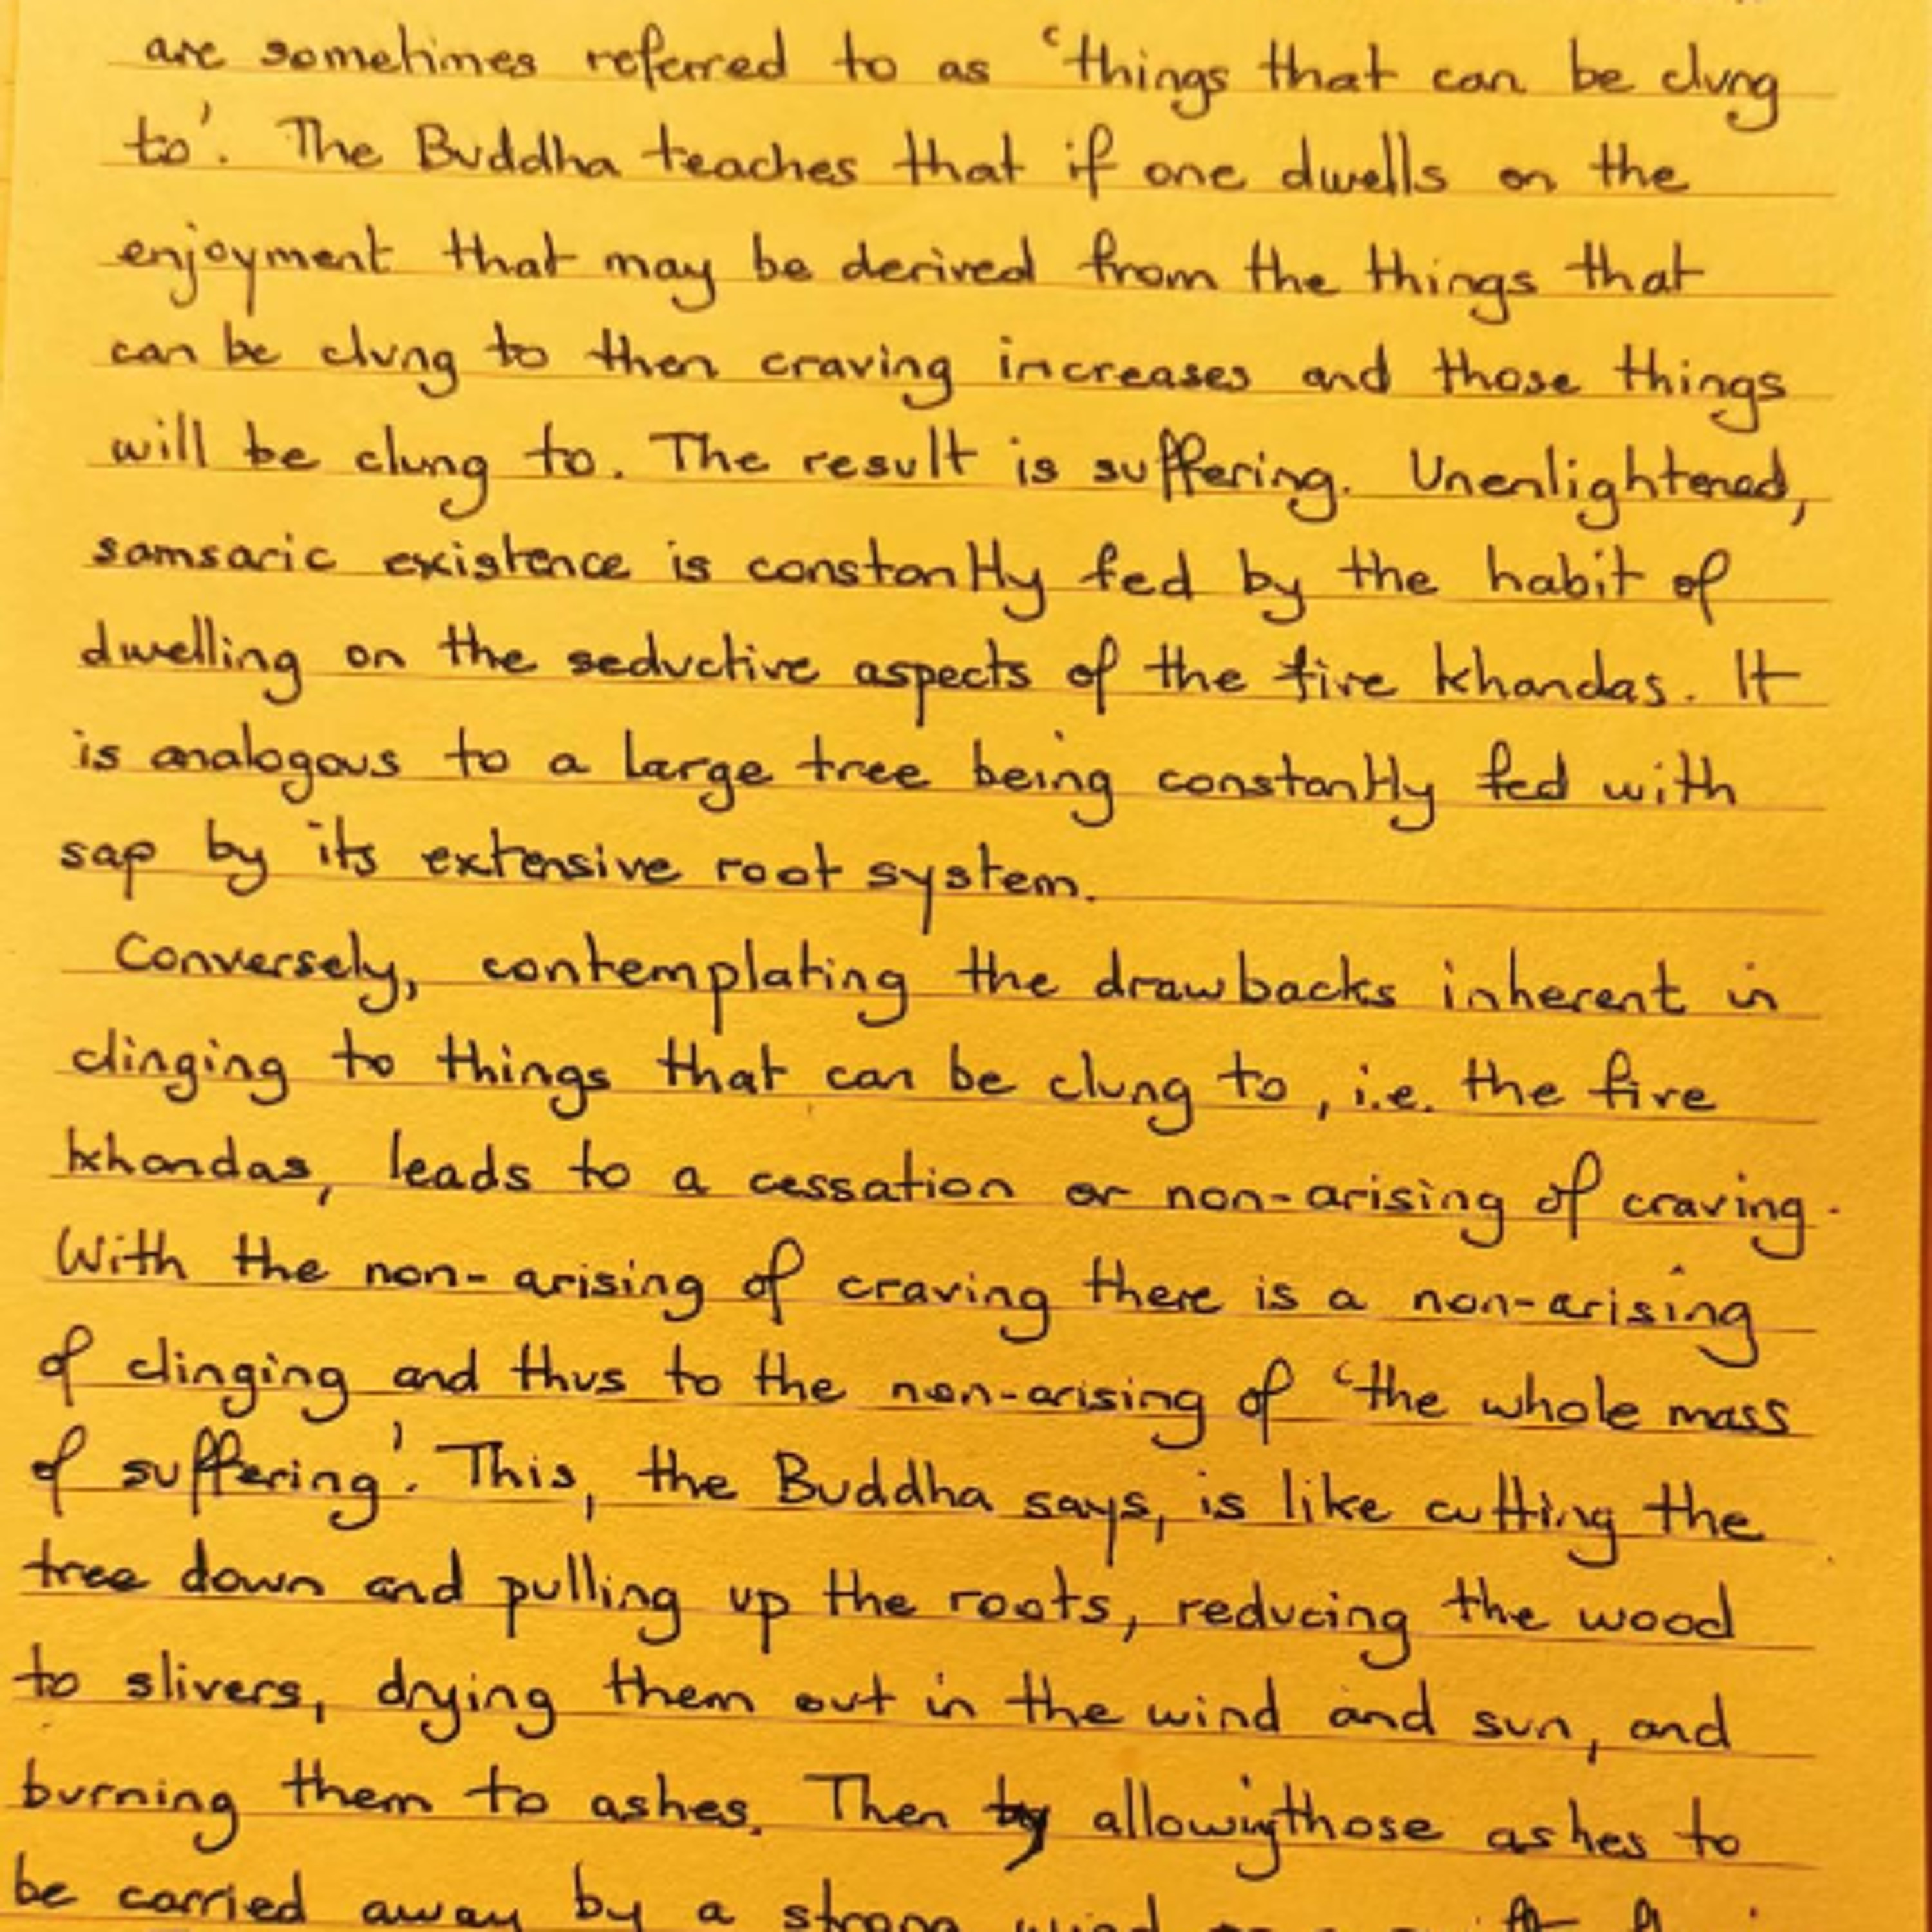 are sometimes referred to as 'things that can be clung
to'. The Buddha teaches that if one dwells on the
enjoyment that may be derived from the things that
can be clung to then craving increases and those things
will be clung to. The result is suffering. Unenlightened,
samsaric existence is constantly fed by the habit of
dwelling on the seductive aspects of the five khandas. It
is analogous to a large tree being constantly fed with
sap by its extensive root system.
Conversely, contemplating the drawbacks inherent in
clinging to things that can be clung to, i.e. the five
khandas, leads to a cessation or non-arising of craving.
With the non-arising of craving there is a non-arising
of clinging and thus to the non-arising of 'the whole mass
of suffering'. This, the Buddha says, is like cutting the
tree down and pulling up the roots, reducing the wood
to slivers, drying them out in the wind and sun, and
burning them to ashes. Then by allowing those ashes to
be carried away by a strong wind